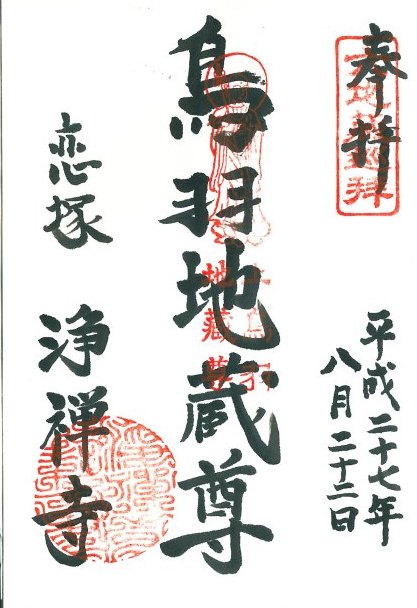 奉拝
平成二十七年
八月二十二日
鳥羽地蔵尊
鳥羽
地藏尊
恋塚 浄禅寺